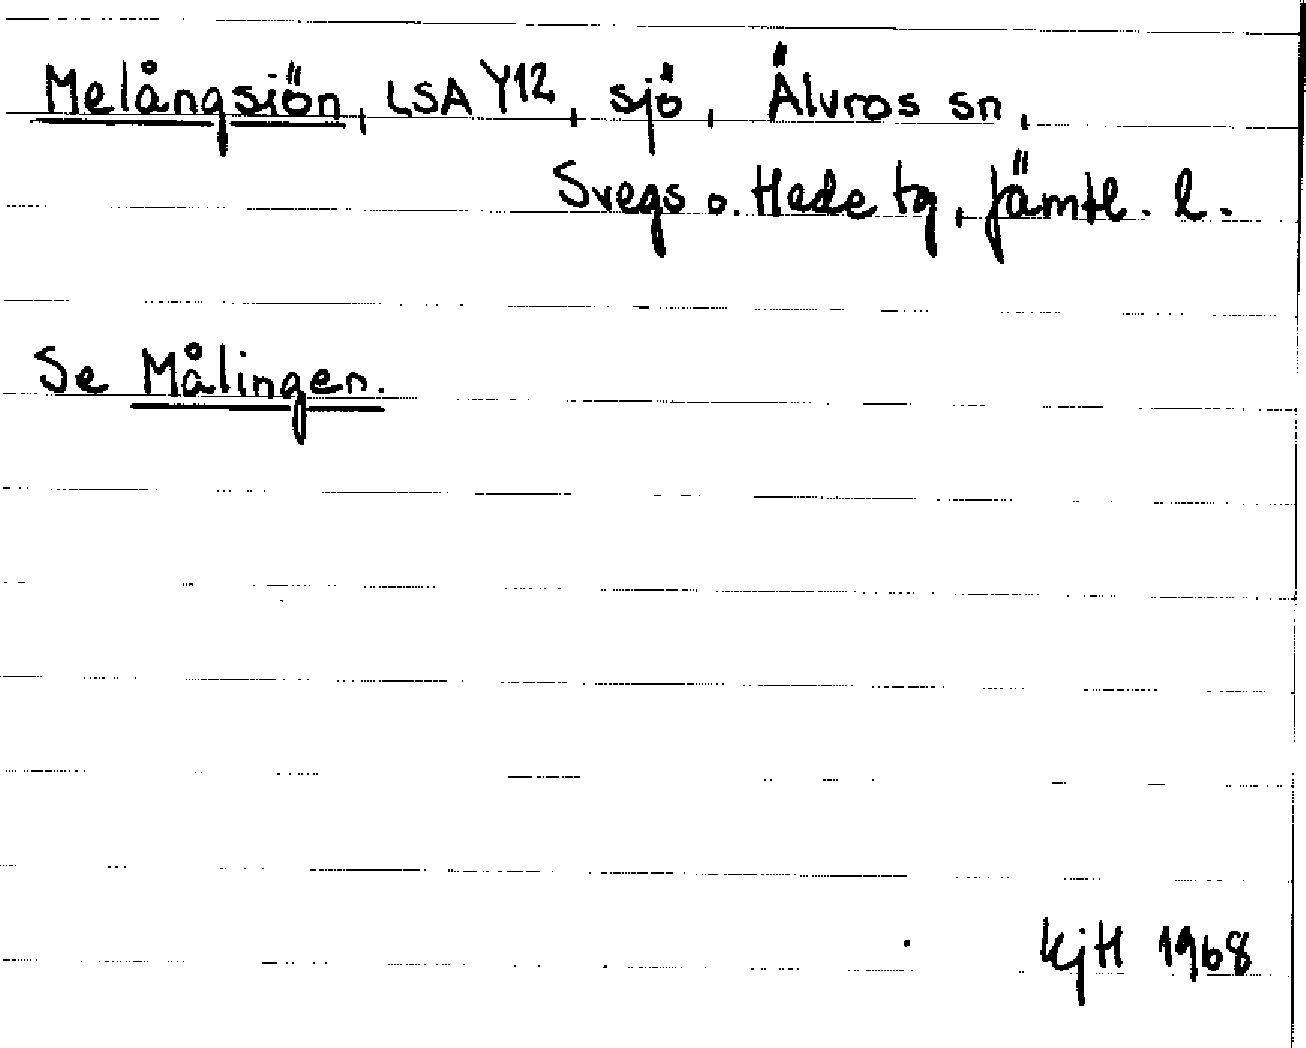 Melångsjön, LSA Y12, sjö, Älvros sn,
Svegs o. Hede tg, Jämtl. l.
Se Målingen.
KjH 1968